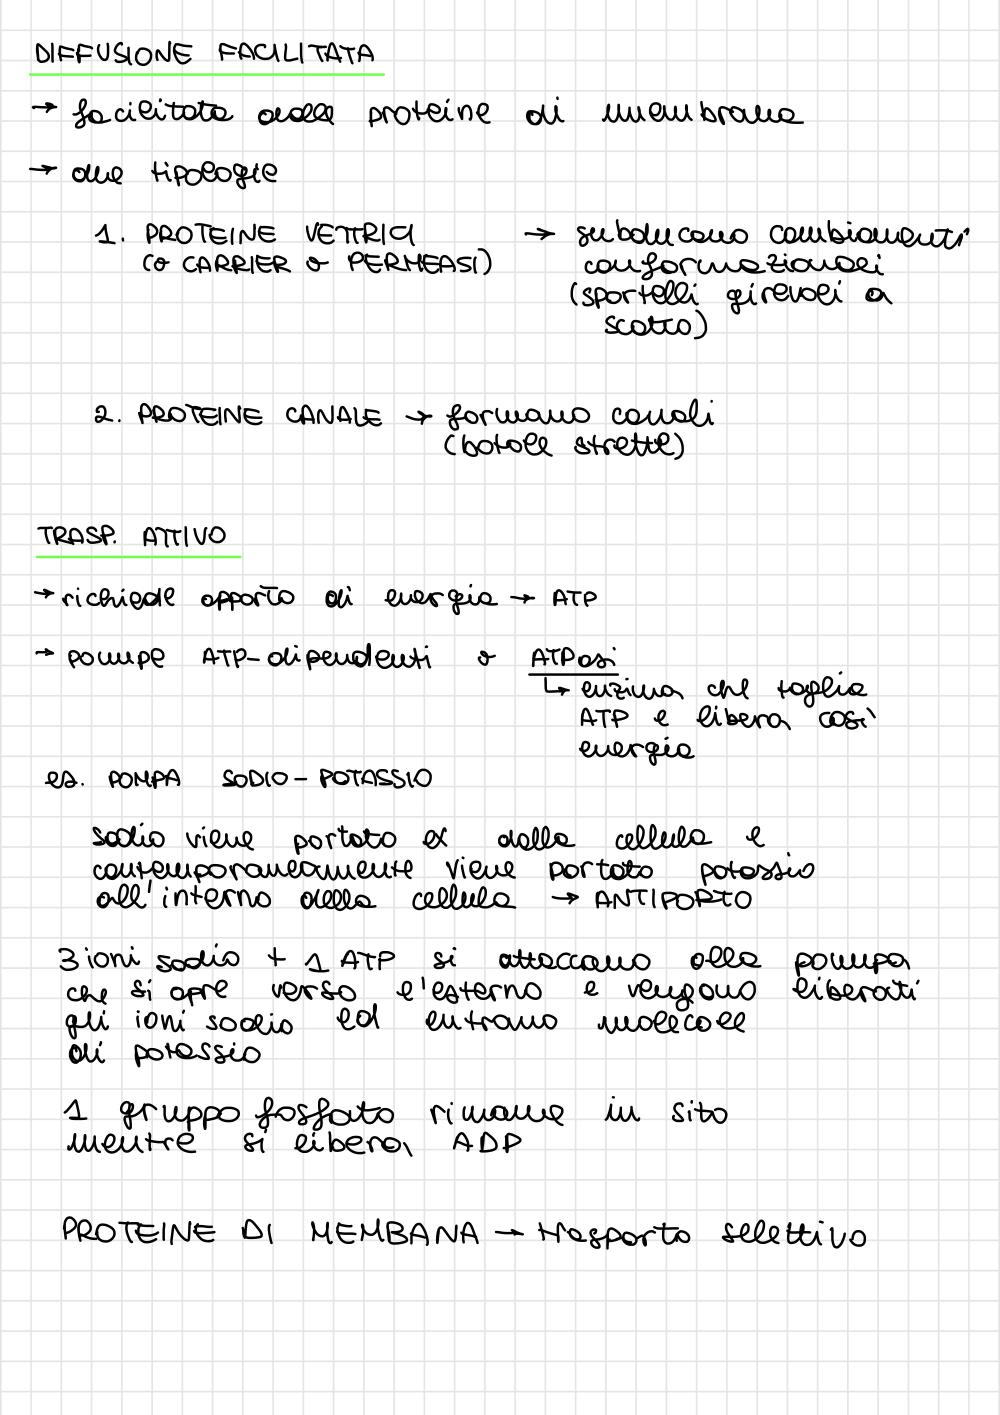 DIFFUSIONE FACILITATA
→ facilitata dalle proteine di membrana
→ due tipologie
1. PROTEINE VETTRICI → subducono cambiamenti
(o CARRIER o PERMEASI) conformazionali
(sportelli girevoli a
scatto)
2. PROTEINE CANALE → formano canali
(botole strette)
TRASP. ATTIVO
→ richiede apporto di energia → ATP
→ pompe ATP-dipendenti o ATPasi
↳ enzima che taglia
ATP e libera così
energia
es. POMPA SODIO-POTASSIO
sodio viene portato ex dalla cellula e
contemporaneamente viene portato potassio
all'interno della cellula → ANTIPORTO
3 ioni sodio + 1 ATP si attaccano alla pompa
che si apre verso l'esterno e vengono liberati
gli ioni sodio ed entrano molecole
di potassio
1 gruppo fosfato rimane in sito
mentre si libera ADP
PROTEINE DI MEMBANA → trasporto selettivo